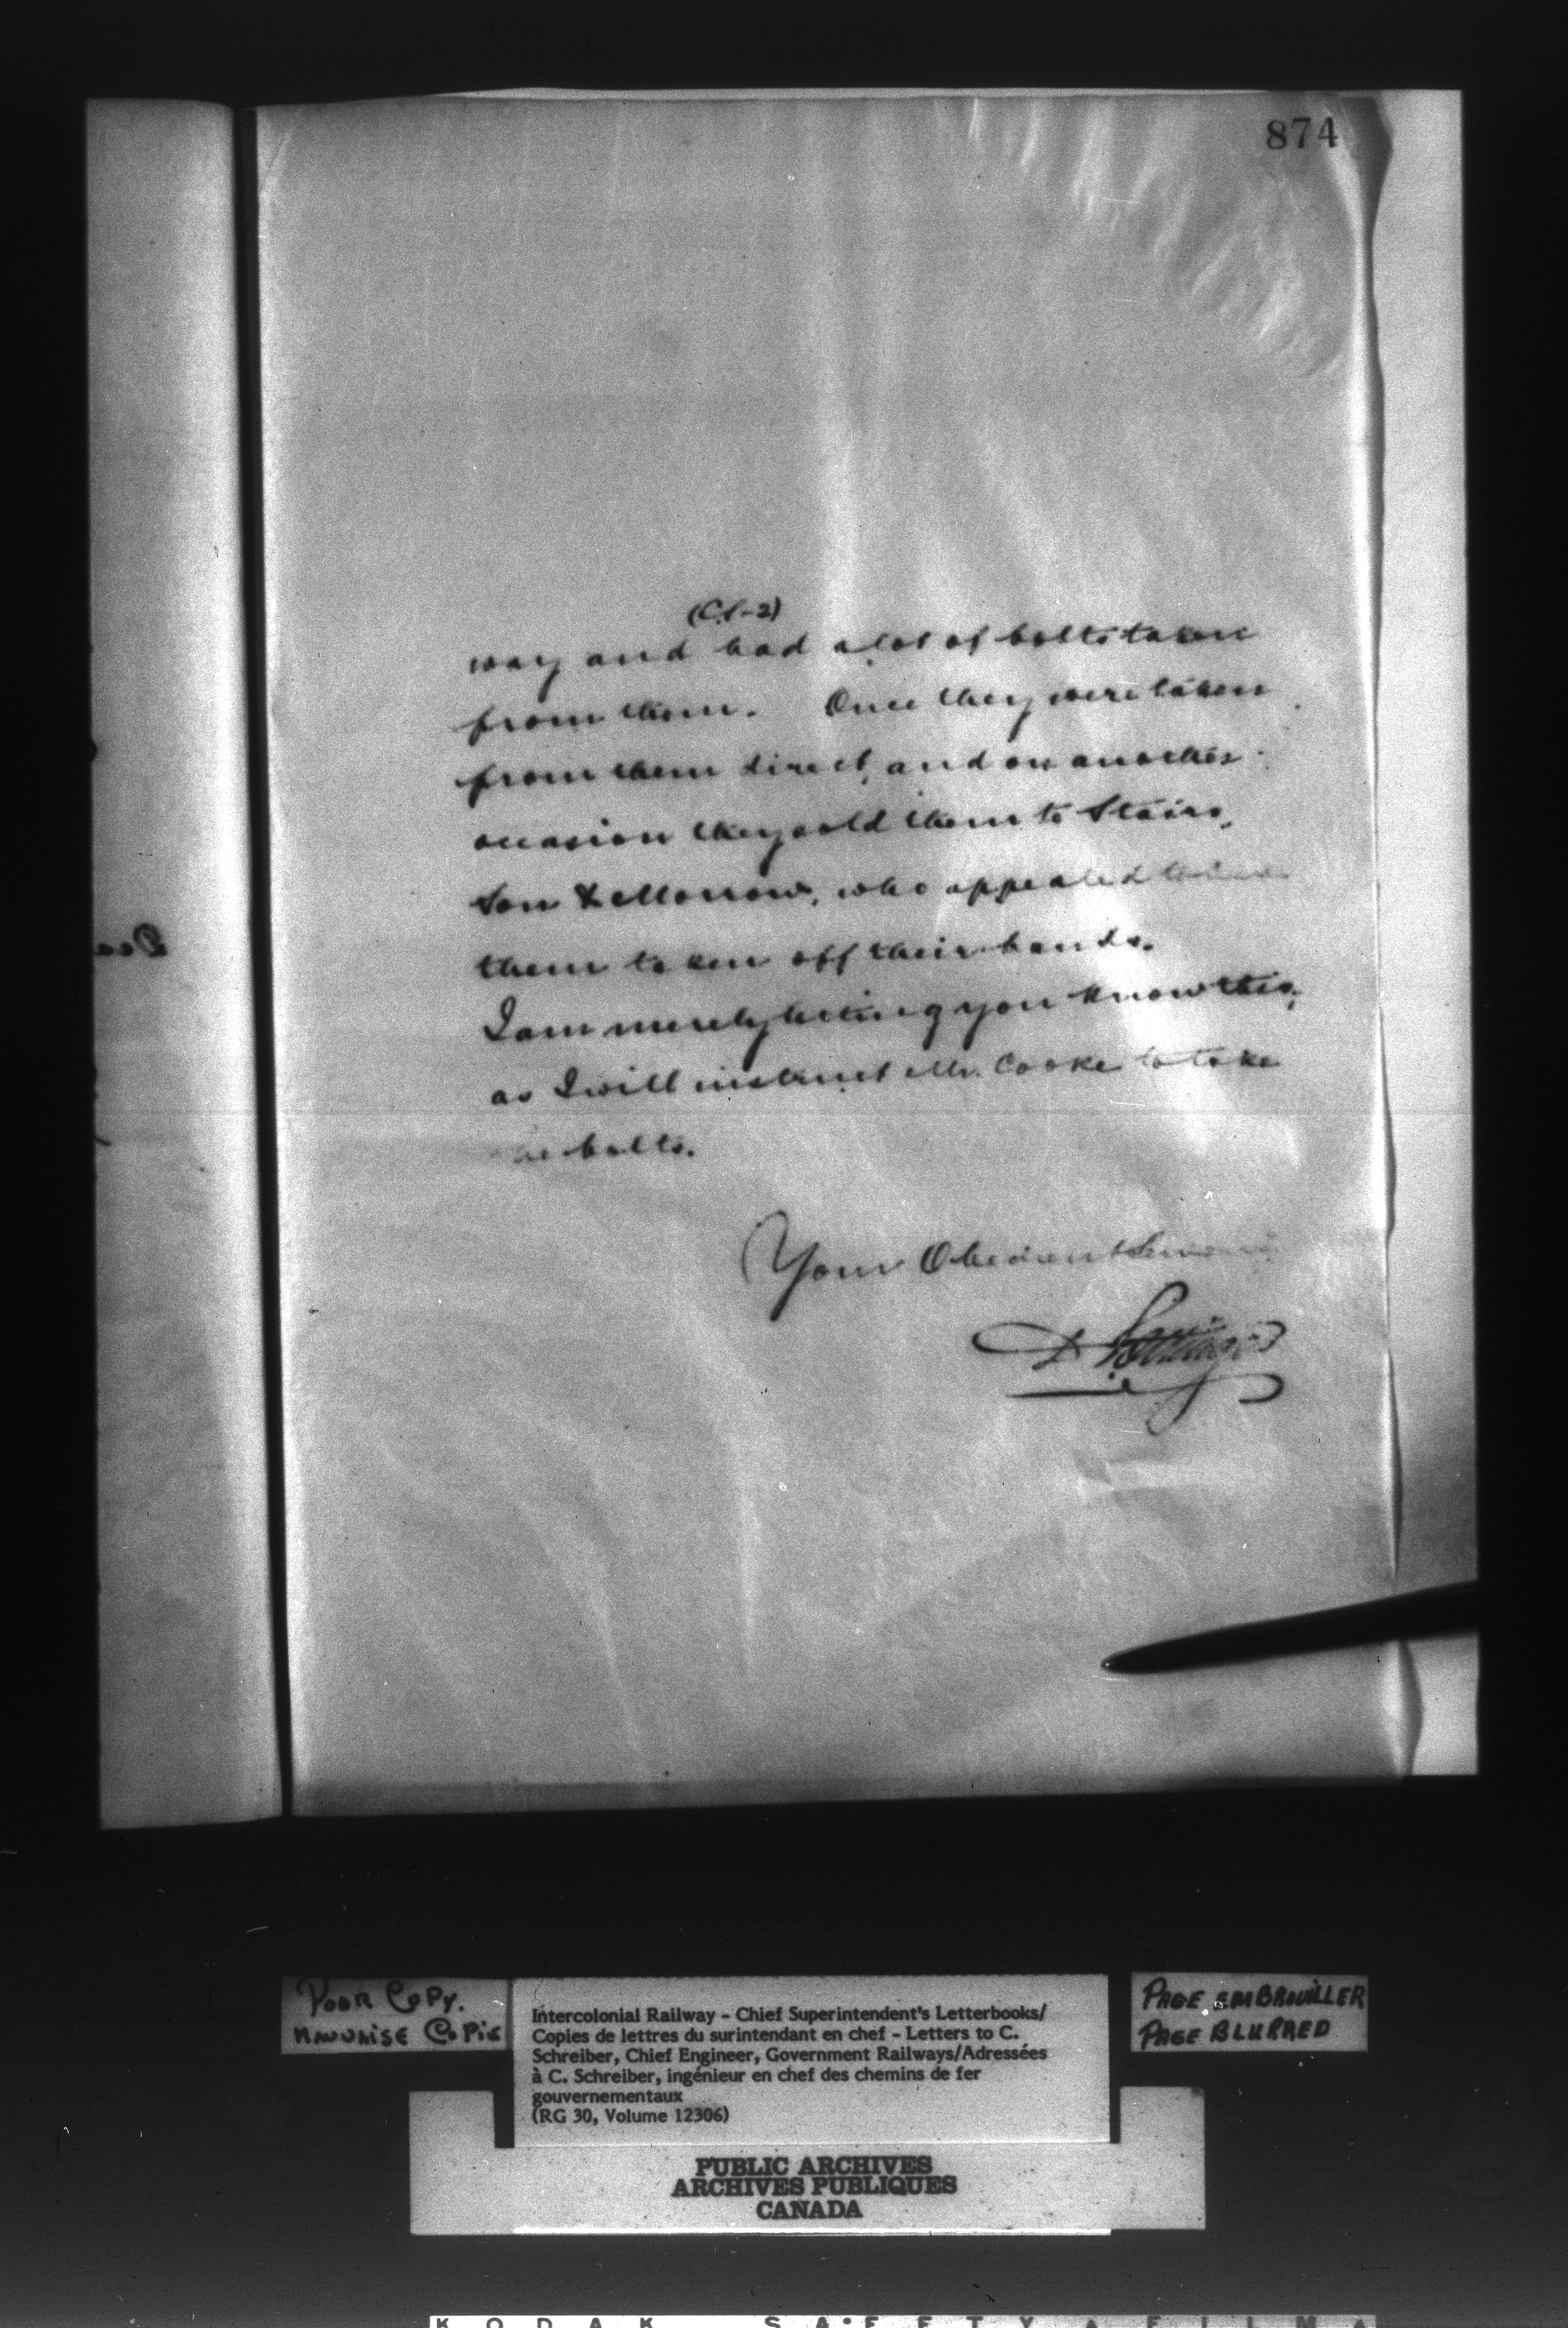 874
(C.S-2)
way and had a lot of bolts taken
from them. Once they were taken
from them direct, and on another
occasion they sold them to Stairs,
Son & Morrow, who appealed to have
them taken off their hands.
I am merely letting you know this,
as I will instruct Mr. Cooke to take
the bolts.
Your Obedient Servant
D Pottinger
Poor Copy.
MAUVAISE COPIE
Intercolonial Railway - Chief Superintendent's Letterbooks/
Copies de lettres du surintendant en chef - Letters to C.
Schreiber, Chief Engineer, Government Railways/Adressées
à C. Schreiber, ingénieur en chef des chemins de fer
gouvernementaux
(RG 30, Volume 12306)
PAGE EMBROUILLER
PAGE BLURRED
PUBLIC ARCHIVES
ARCHIVES PUBLIQUES
CANADA
KODAK SAFETY FILM